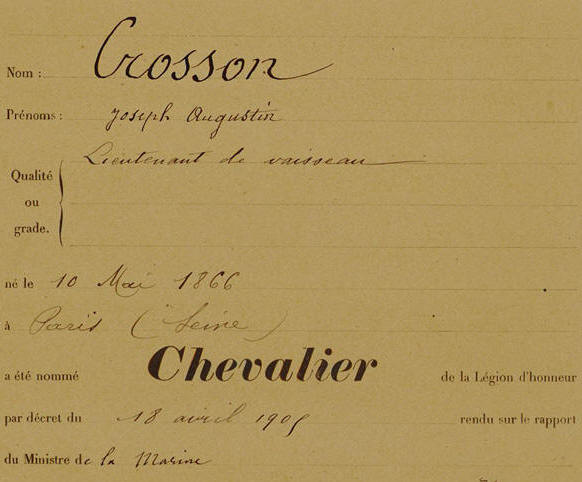 Nom : Crosson
Prénoms : Joseph Augustin
Lieutenant de vaisseau
Qualité
ou
grade.
né le 10 Mai 1866
à Paris (Seine)
a été nommé Chevalier de la Légion d'honneur
par décret du 18 avril 1905 rendu sur le rapport
du Ministre de la Marine